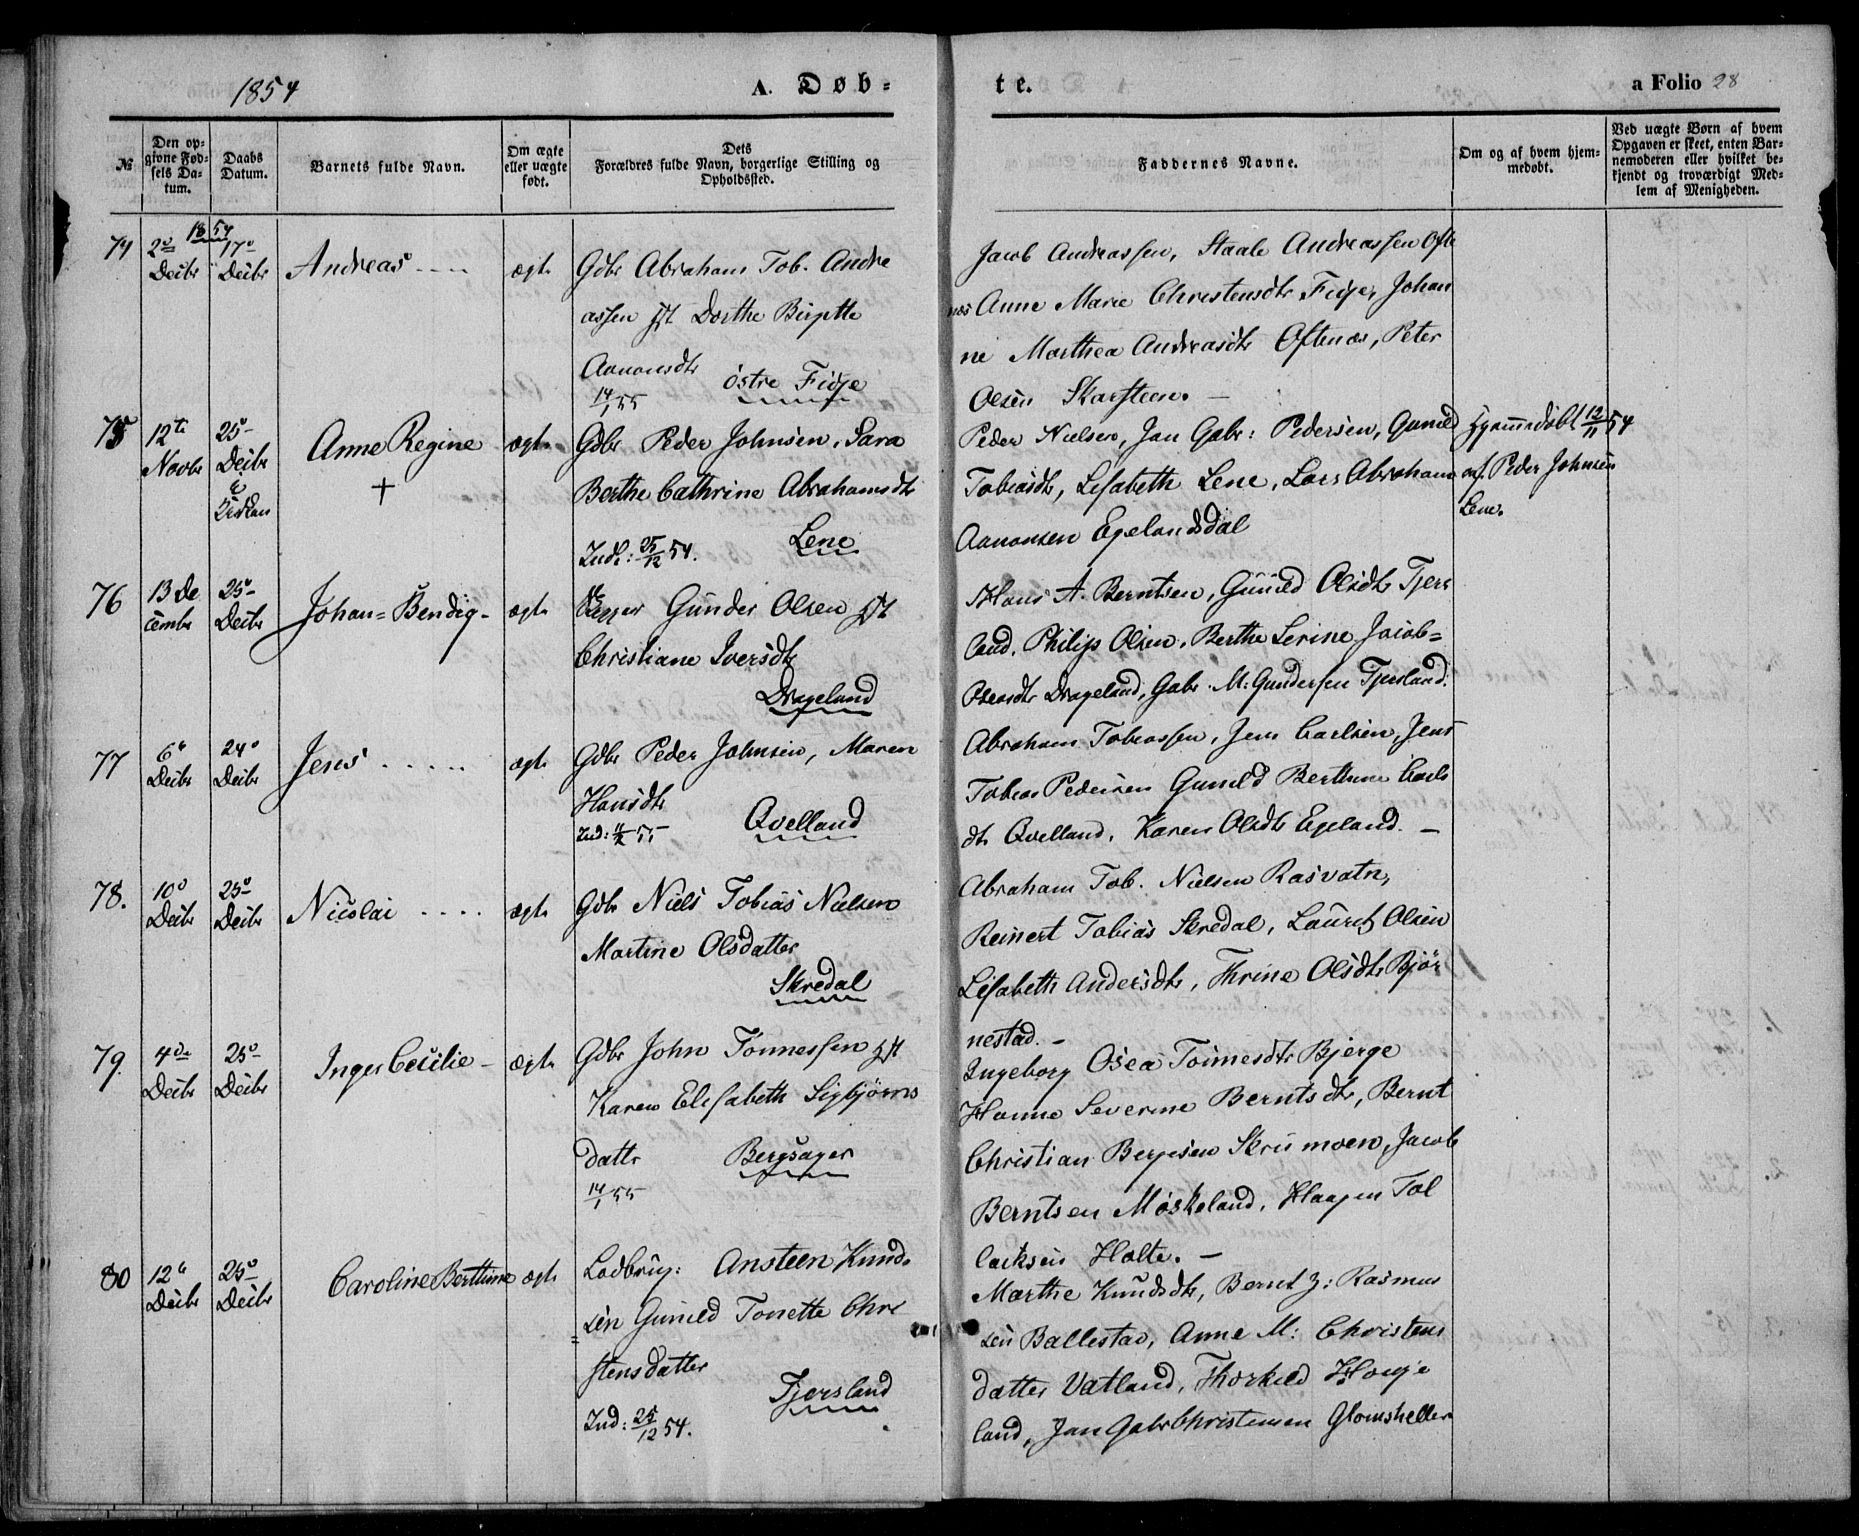 1854
A. Døb-
te.
a Folio 28
№
Den opgivne Fødsels Datum.
Daabs Datum.
Barnets fulde Navn.
Om ægte eller uægte født.
Dets Forældres fulde Navn, borgerlige Stilling og Opholdssted.
Faddernes Navne.
Om og af hvem hjemmedøbt.
Ved uægte Børn af hvem Opgaven er skeet, enten Barnemoderen eller hvilket bekjendt og troværdigt Medlem af Menigheden.
1854
74 2den Decbr 17de Decbr Andreas ægte
Gdbr Abraham Tob. Andre
assen Hst Dorthe Birgitte
Aanonsdtr østre Fidje
14/1 55
Jacob Andreassen, Staale Andreassen Ofte
næs Anne Marie Christensdtr Fidje, Johan
ne Marthea Andreasdtr Oftenæs, Peter
Olsen Skarsteen. —
75 12te Novbr 25de Decbr i Kirken Anne Regine + ægte
Gdbr Peder Johnsen, Sara
Berthe Cathrine Abrahamsdtr
Ind: 25/12 54. Lene
Peder Nielsen, Jan Gabr: Pedersen, Gunild
Tobiasdtr, Lisabeth Lene, Lars Abraham
Aanonsen Egelandsdal
Hjemmedøbt 12/11 54
af Peder Johnsen
Lene.
76 13de December 25de Decbr Johan=Bendig- ægte
Gunder Olsen Hst
Christiane Iversdtr
Drageland
Hans A. Berntsen, Gunild Olsdtr Tjers
land, Philip Olsen, Berthe Serine Jacob=
Oseasdtr Drageland, Gabr. M. Gundersen Tjersland.
77 6te Decbr 24de Decbr Jens ægte
Gdbr Peder Johnsen, Maren
Hansdtr
Ind: 55 Qvelland
Abraham Tobiassen, Jens Carlsen, Jens
Tobias Pedersen Gunild Berthine Carls
dtr Qvelland, Karen Olsdtr Egeland. —
78. 10de Decbr 25de Decbr Nicolai ægte
Gdbr Niels Tobias Nielsen
Martine Olsdatter
Skredal
Abraham Tob. Nielsen Rasvatn,
Reinert Tobias Skredal, Lauritz Olsen
Lisabeth Andersdtr, Thrine Olsdtr Bjør
nestad. —
79. 4de Decbr 25de Decbr Inger Cecilie - ægte
Gdbr John Tønnessen Hst
Karen Elisabeth Sigbjørns
datter Bergsager
14/1 55
Ingeborg Osea Tønnesdtr Bjerge
Hanne Severine Berntsdtr, Bernt
Christian Bergesen Skrumoen, Jacob
Berntsen Møskeland, Haagen Tol
laksen Holte. —
80 12te Decbr 25de Decbr Caroline Berthine ægte
Lodbrug: Ansteen Knud-
sen Gunild Tonette Chri
stensdatter
Tjersland
Ind: 25/12 54.
Marthe Knudsdtr, Bernt Z: Rasmus
sen Ballestad, Anne M: Christens
datter Vatland, Thorkild Houge
land, Jan Gabr Christensen Glomsheller